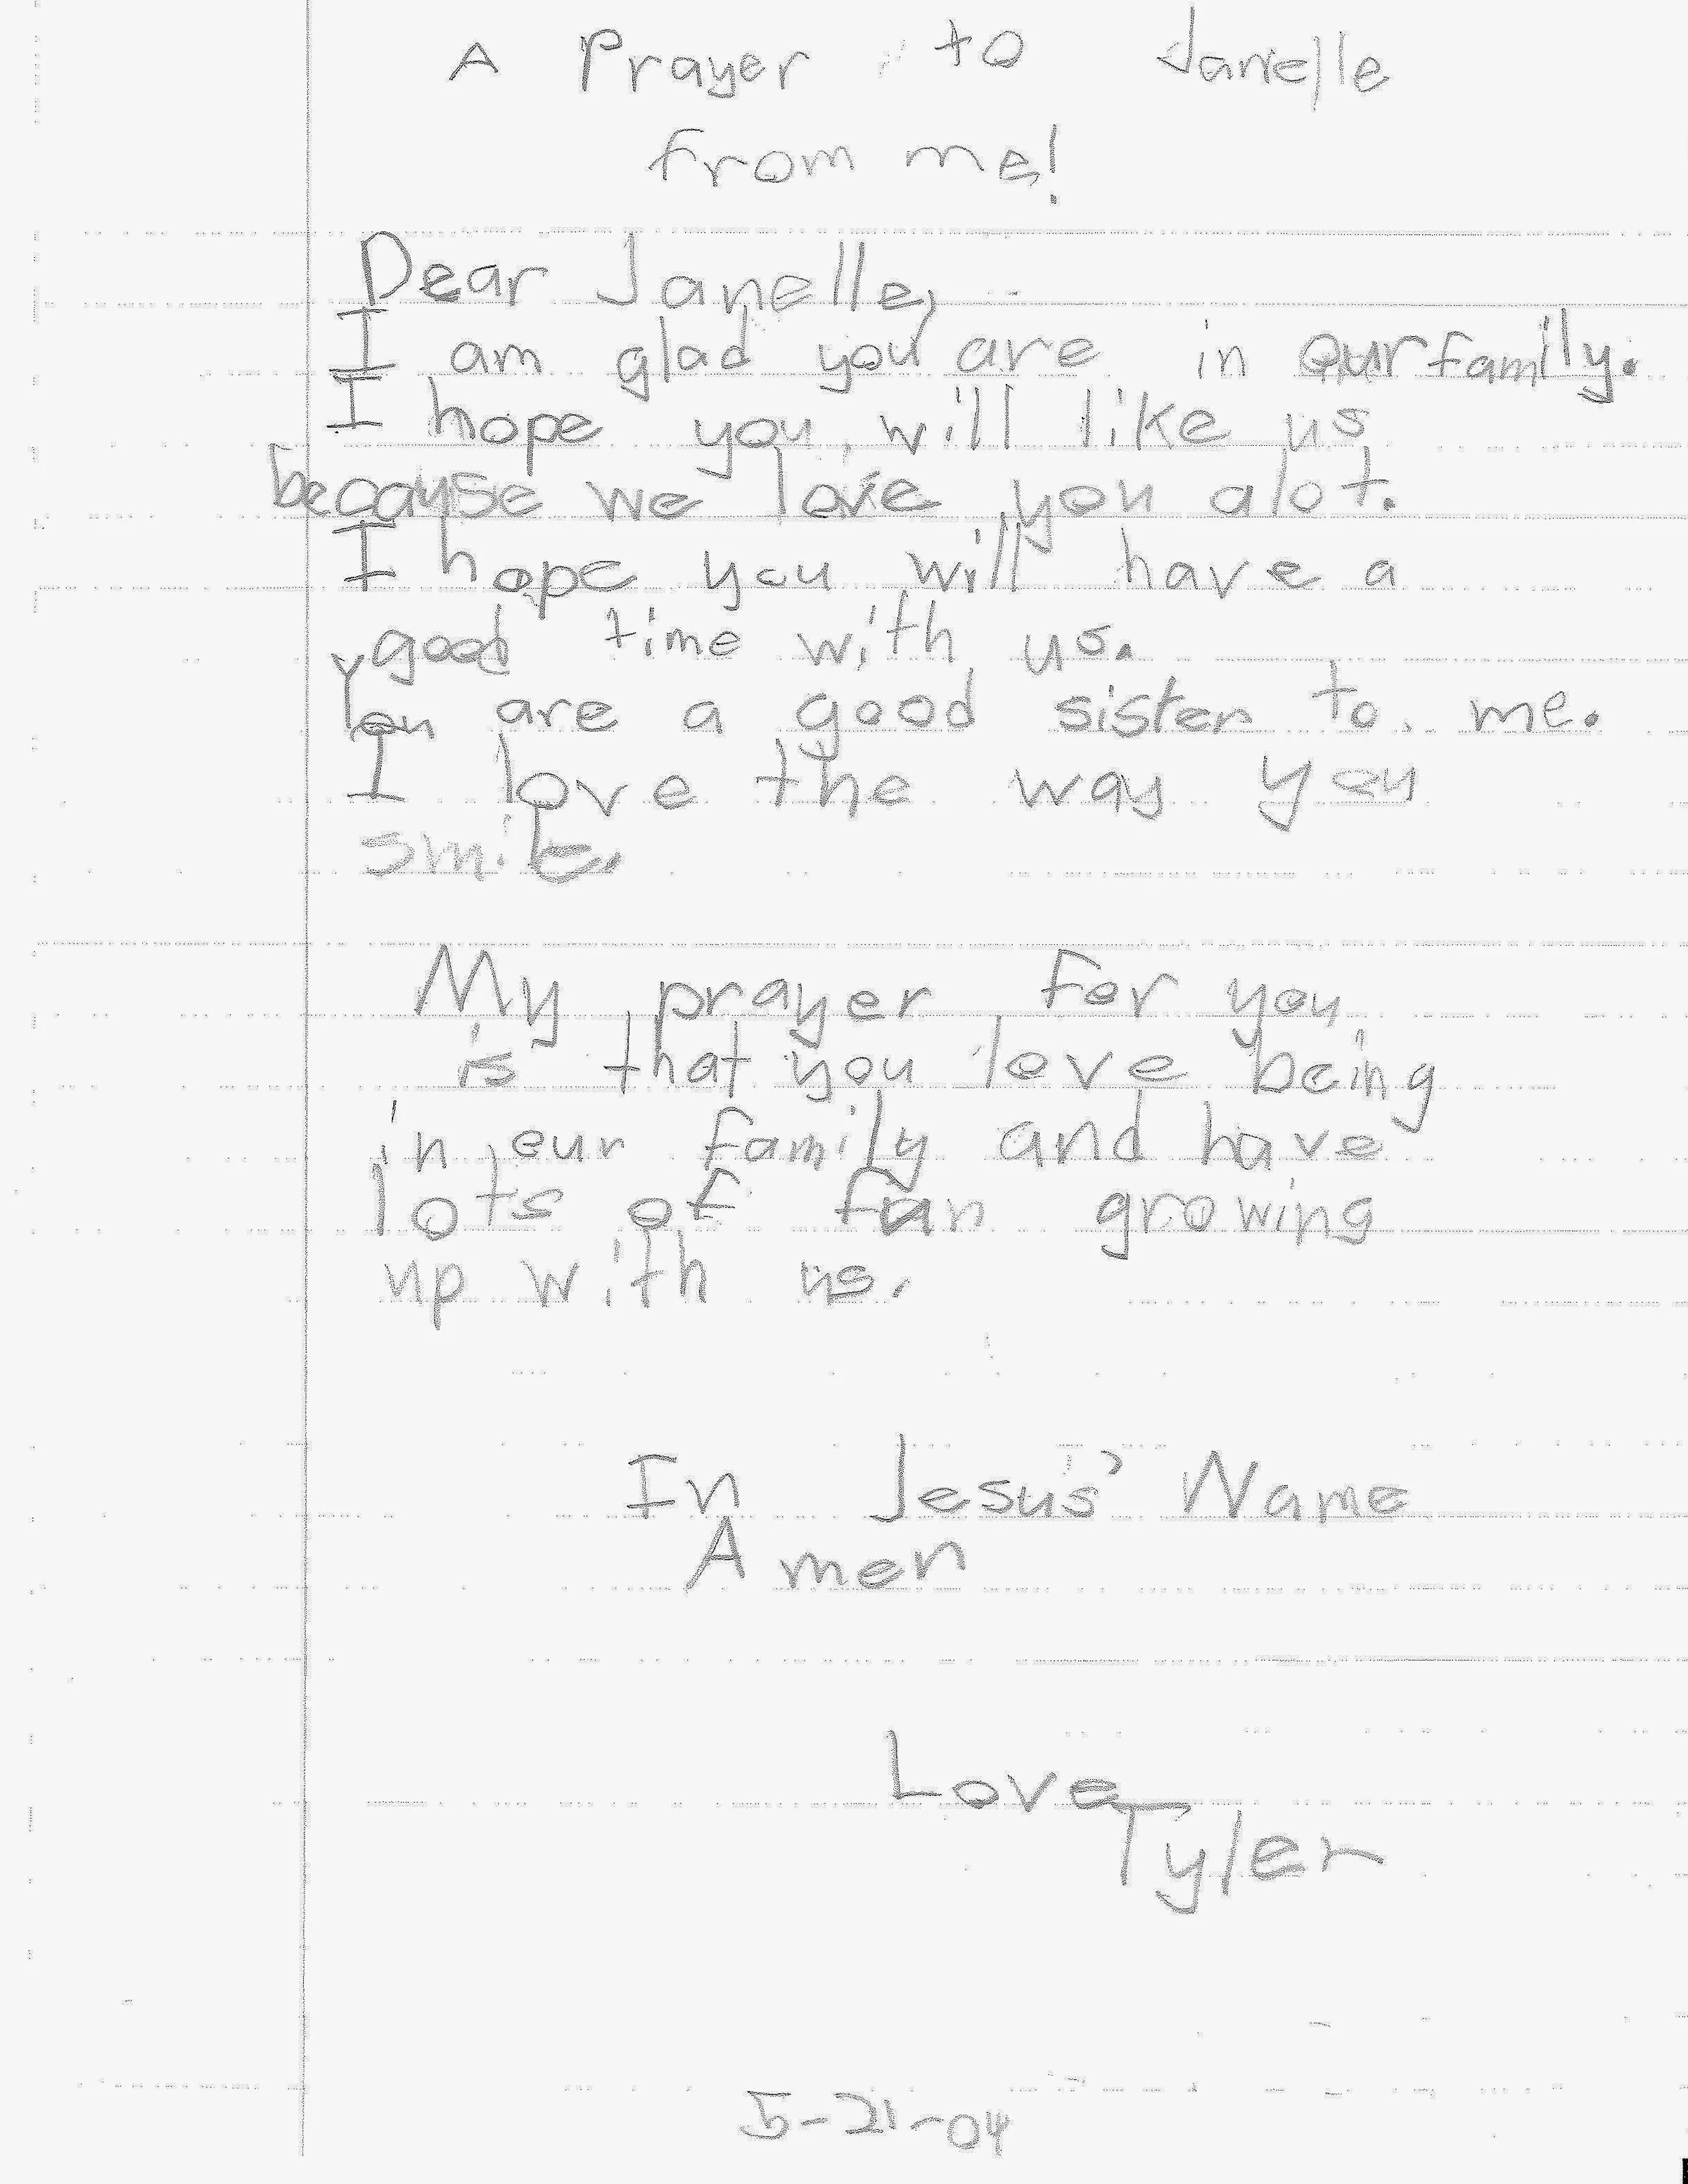 A Prayer to Janelle
from me!
Dear Janelle,
I am glad you are in our family.
I hope you will like us
because we love you alot.
I hope you will have a
good time with us.
You are a good sister to me.
I love the way you
smile.
My prayer for you
is that you love being
in our family and have
lots of fun growing
up with us.
In Jesus' Name
Amen
Love,
Tyler
5-21-04